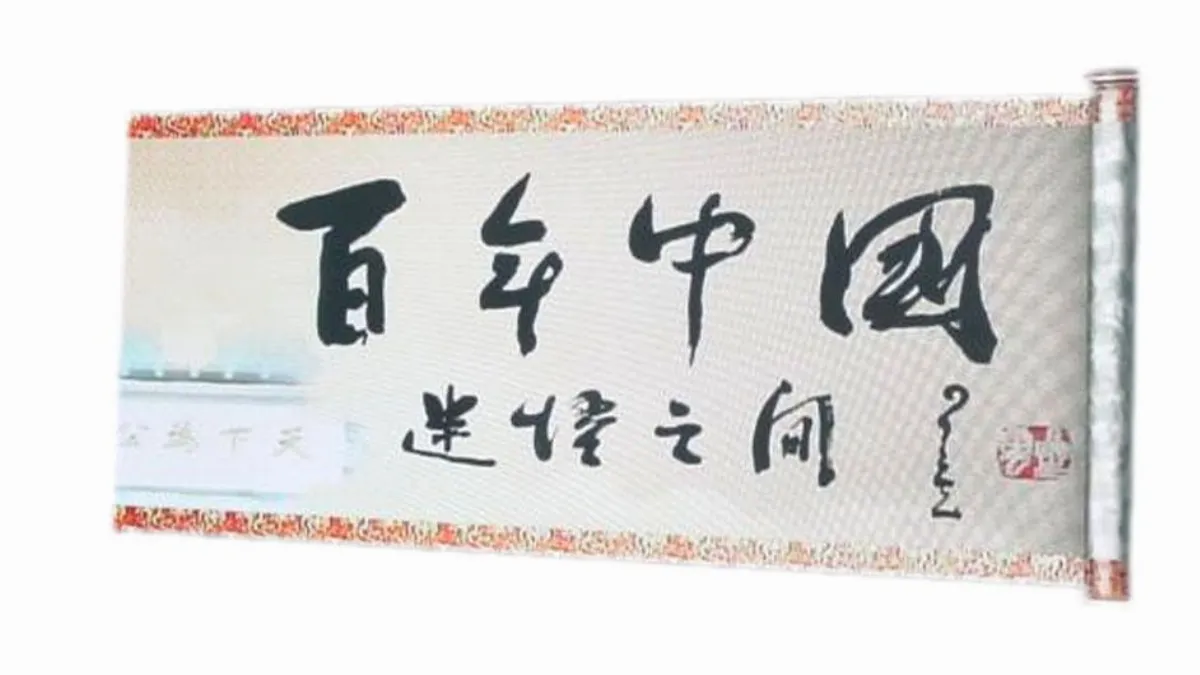 百年中國
迷悟之間
天下為公